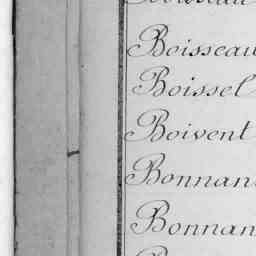 Boisseau
Boissel
Boivent
Bonnan
Bonnan